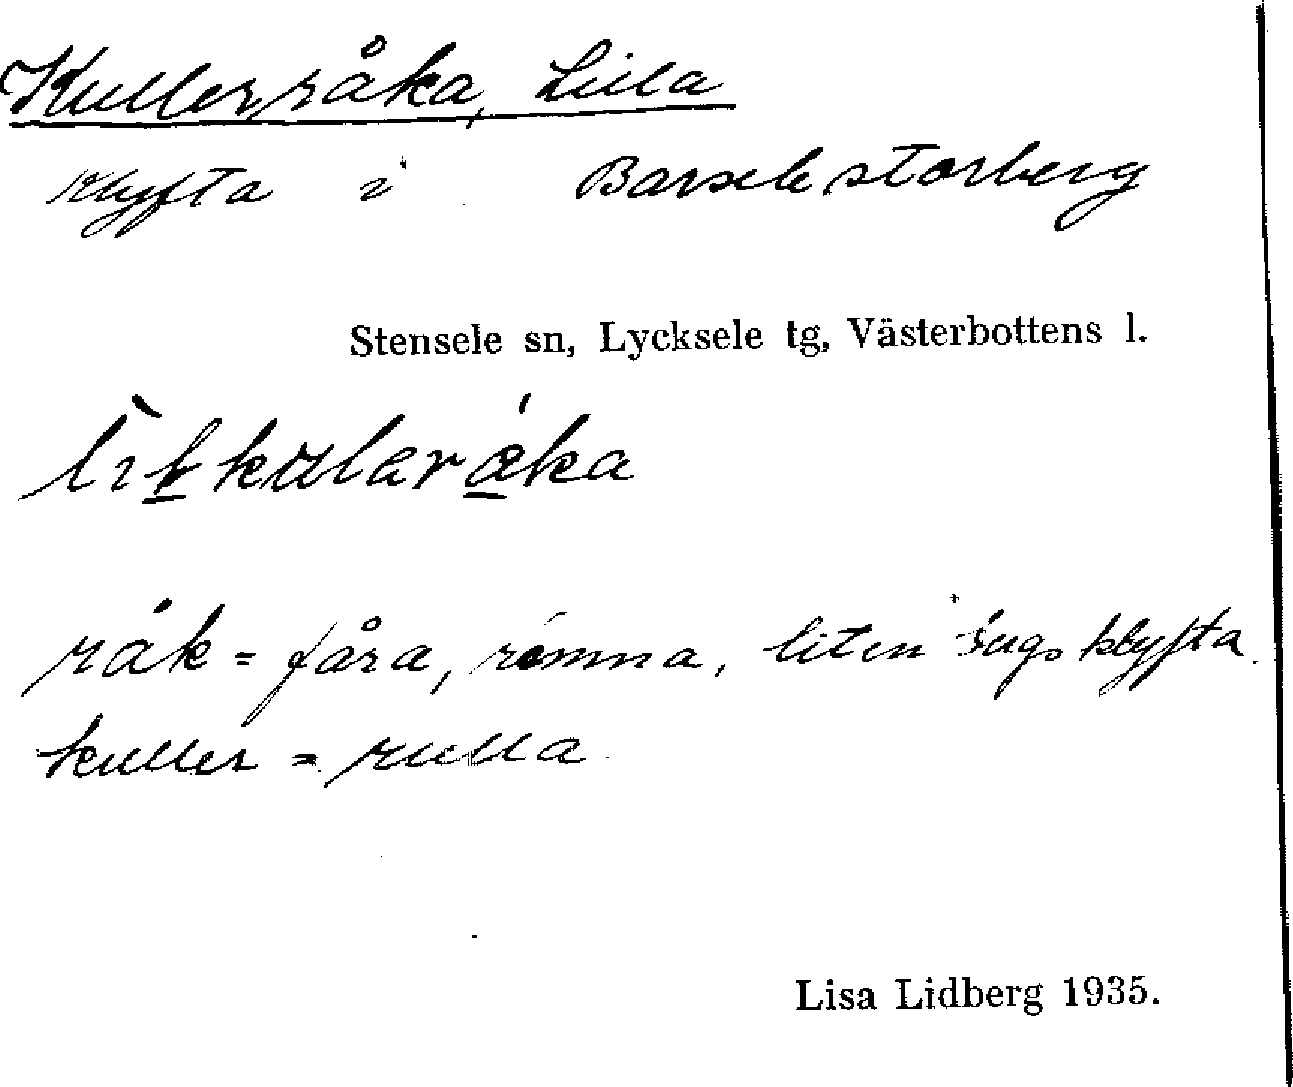 Kullerråka, Lilla
Klyfta i Barselestorberg
Stensele sn, Lycksele tg, Västerbottens l.
råk = fåra, rämna, liten bergsklyfta.
kuller = rulla
Lisa Lidberg 1935.